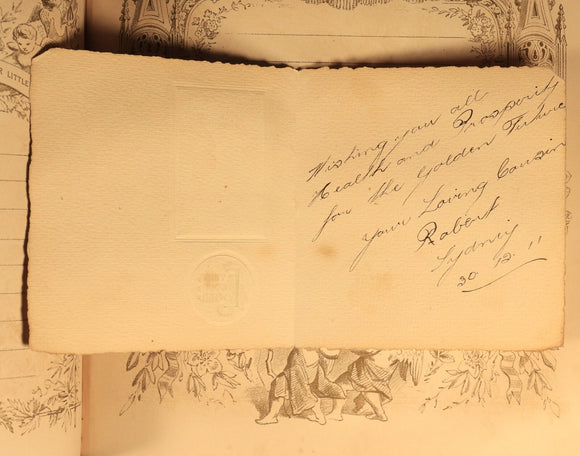 R LITTLE
Wishing you all
Health and Prosperity
for the Golden Future
Your Loving Cousin
Robert
Sydney
30. 12. 11